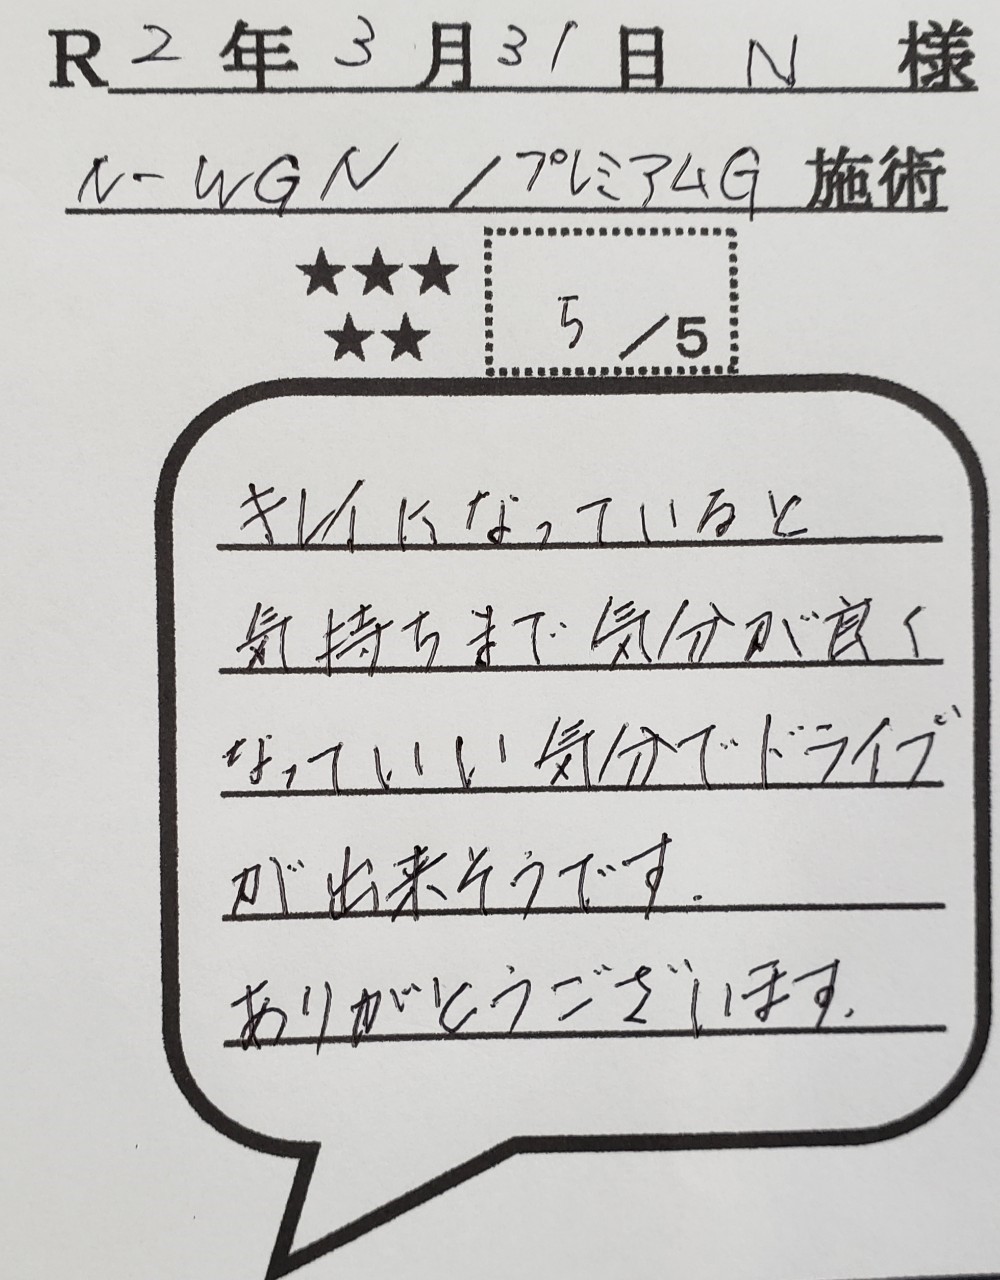 R2年3月31日 N 様
N-WGN /プレミアムG 施術
★★★
★★
5/5
キレイになっていると
気持ちまで気分が良く
なっていい気分でドライブ
が出来そうです.
ありがとうございます.